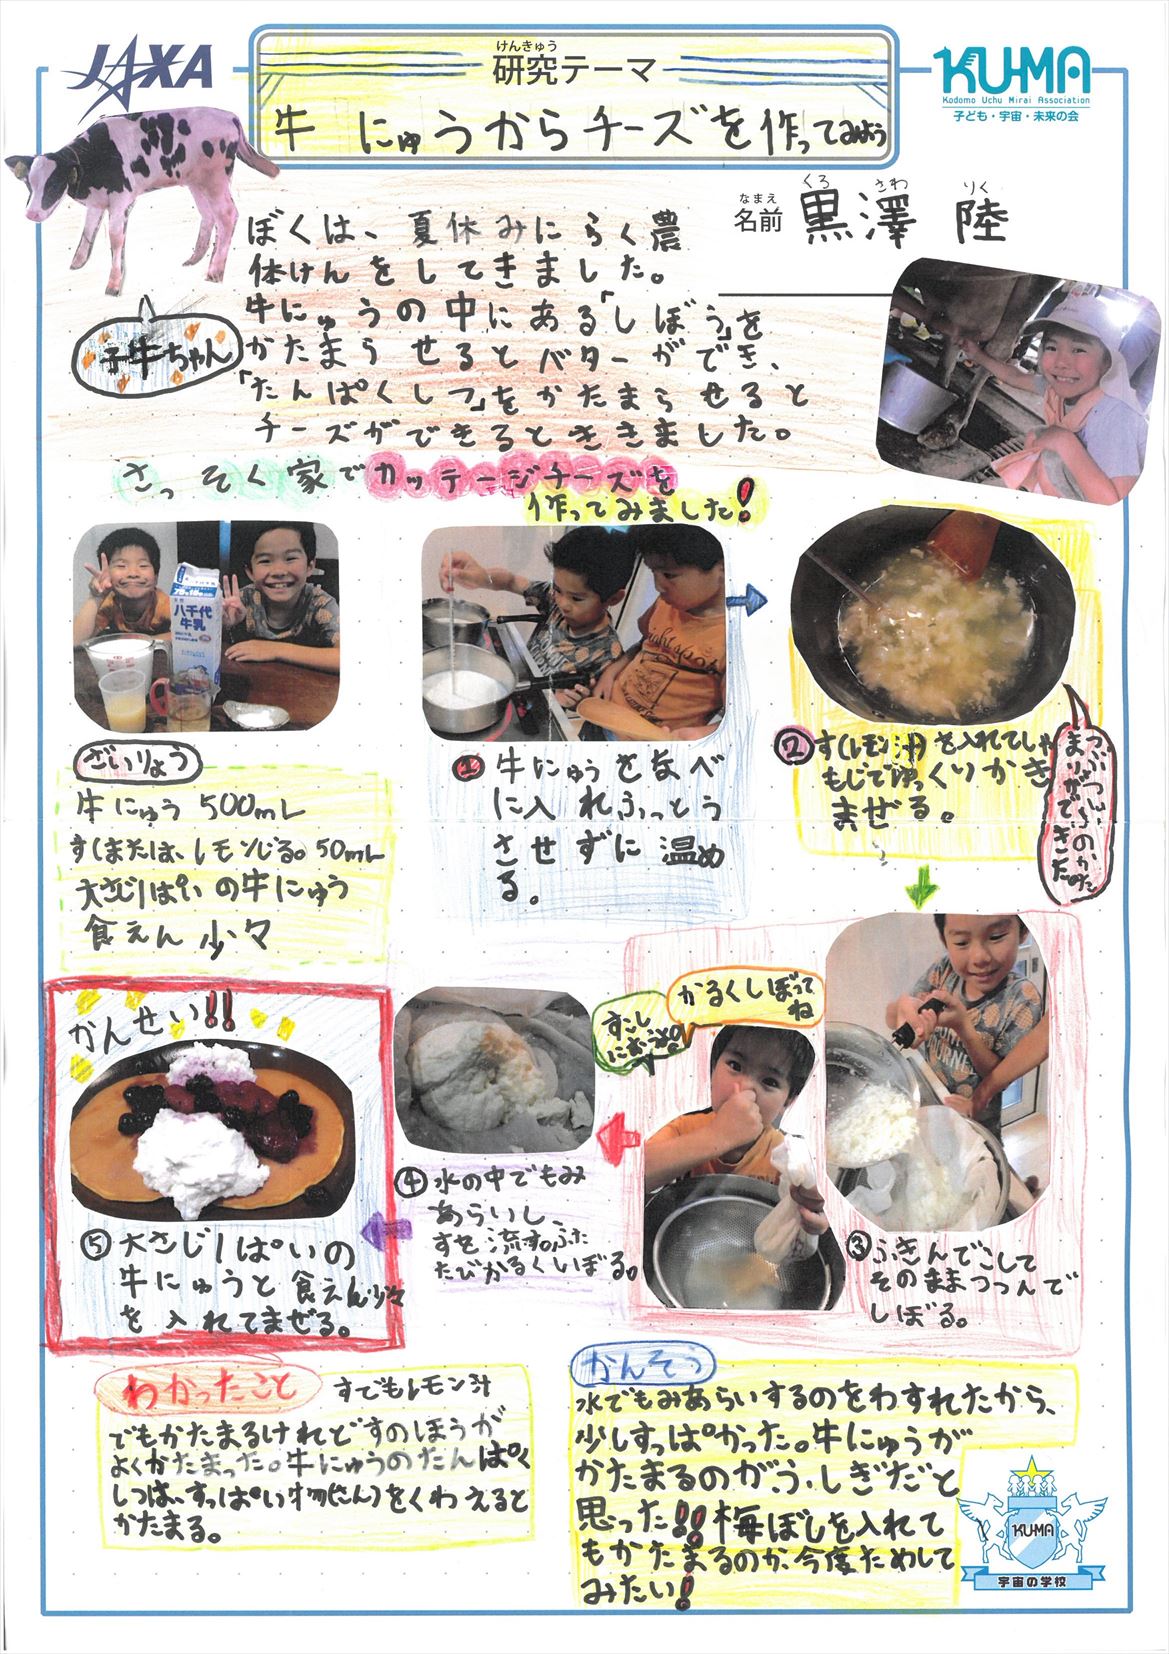 JAXA
けんきゅう
研究テーマ
KU-MA
Kodomo Uchu Mirai Association
子ども・宇宙・未来の会
牛にゅうからチーズを作ってみよう
なまえ くろ さわ りく
名前 黒澤 陸
ぼくは、夏休みにらく農
体けんをしてきました。
牛にゅうの中にある「しぼう」を
かたまうせるとバターができ、
「たんぱくしつ」をかたまらせると
チーズができるとききました。
子牛ちゃん
さっそく家でカッテージチーズを
作ってみました!
八千代
牛乳
ざいりょう
牛にゅう 500mL
す(または、レモンじる。50mL
大さじ1ぱいの牛にゅう
食えん 少々
①牛にゅうをなべ
に入れふっとう
させずに温め
る。
②す(レモン汁)を入れてしゃ
もじでゆっくりかき
まぜる。
つぶつぶのかた
まりができた。
かるくしぼって
ね
すこし
におうな。
③ふきんでこして
そのままつつんで
しぼる。
④水の中でもみ
あらいし、
すを流す。ふた
たびかるくしぼる。
かんせい!!
⑤大さじ1ぱいの
牛にゅうと食えん少々
を入れてまぜる。
わかったこと
すでもレモン汁
でもかたまるけれどすのほうが
よくかたまった。牛にゅうのたんぱく
しつは、すっぱい物(さん)をくわえると
かたまる。
かんそう
水でもみあらいするのをわすれたから、
少しすっぱかった。牛にゅうが
かたまるのがふしぎだと
思った!!梅ぼしを入れて
もかたまるのか今度ためして
みたい!
KU-MA
宇宙の学校